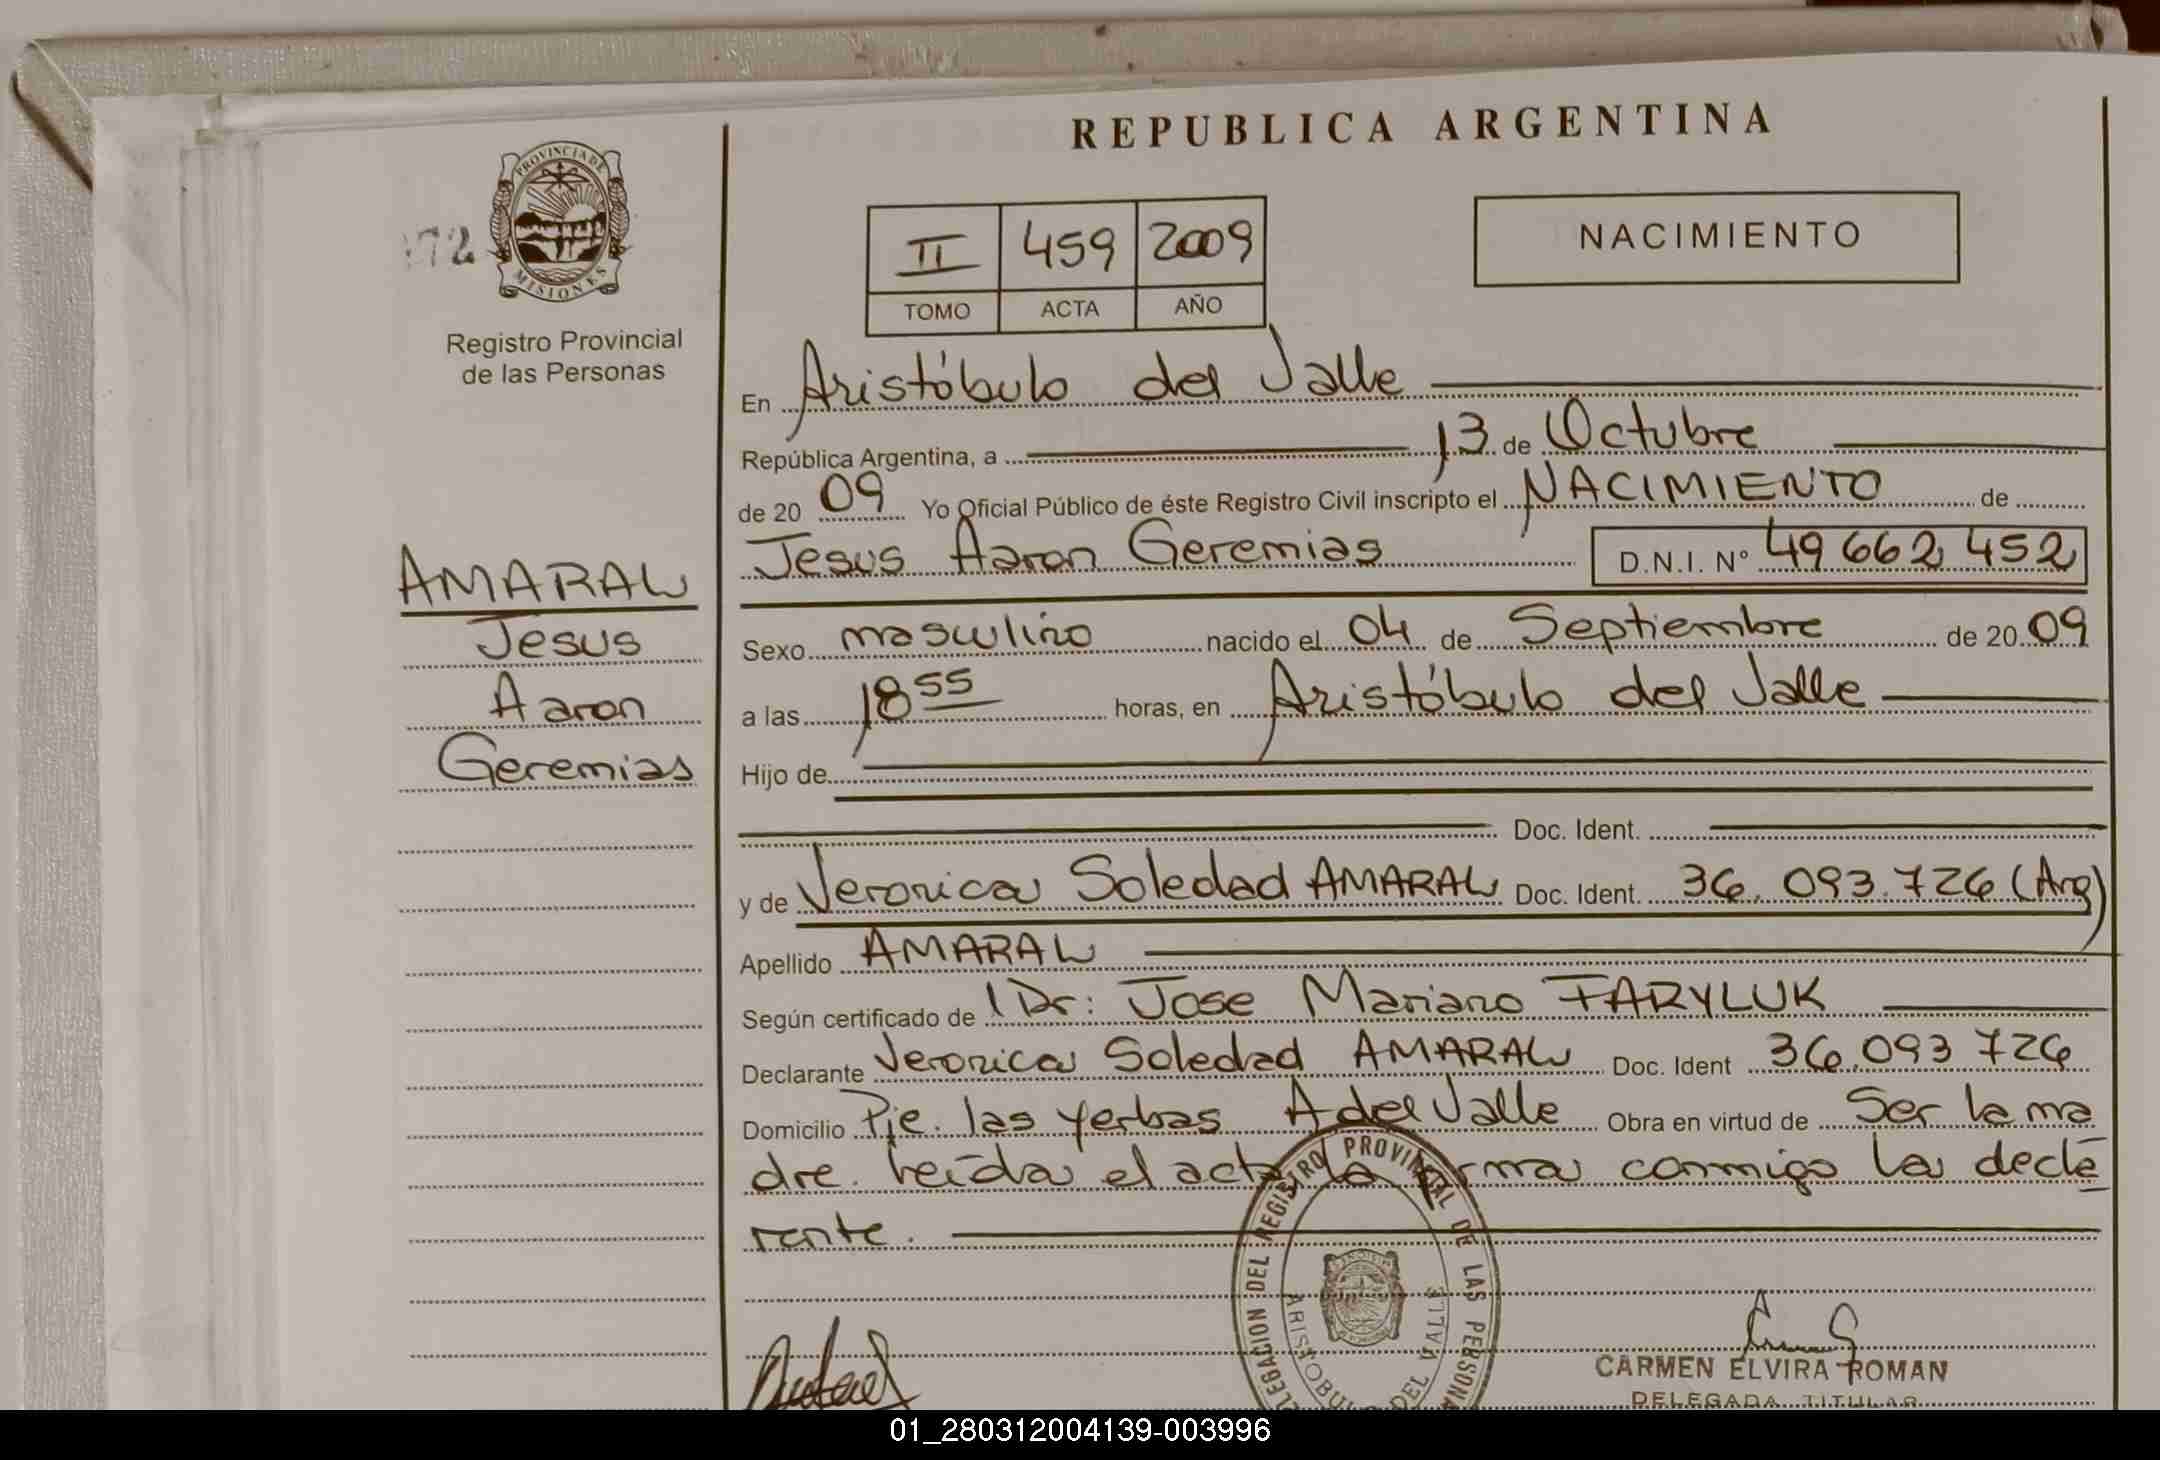 REPUBLICA ARGENTINA
PROVINCIA DE
MISIONES
172
Registro Provincial
de las Personas
II 459 2009
TOMO ACTA AÑO
NACIMIENTO
En Aristóbulo del Valle
República Argentina, a 13 de Octubre
de 20 09 Yo Oficial Público de éste Registro Civil inscripto el NACIMIENTO de
Jesus Aaron Geremias D.N.I. Nº 49 662 452
AMARAL
Jesus
Aaron
Geremias
Sexo masculino nacido el 04 de Septiembre de 20 09
a las 18 55 horas, en Aristóbulo del Valle
Hijo de
Doc. Ident.
y de Veronica Soledad AMARAL Doc. Ident. 36.093.726 (Arg)
Apellido AMARAL
Según certificado de Dr: Jose Mariano FARYLUK
Declarante Veronica Soledad AMARAL Doc. Ident 36.093 726
Domicilio Pje. las yerbas A del Valle Obra en virtud de Ser la ma
dre. leída el acta la firma conmigo la decla
rante.
DELEGACION DEL REGISTRO PROVINCIAL DE LAS PERSONAS
ARISTOBULO DEL VALLE
CARMEN ELVIRA ROMAN
DELEGADA TITULAR
01_280312004139-003996